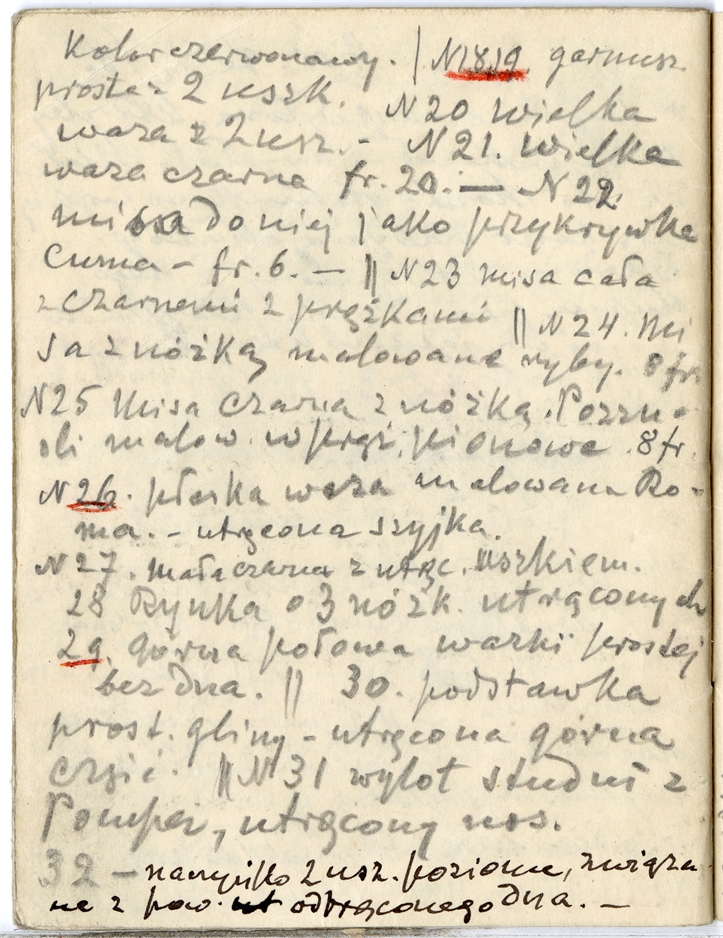 Kolor czerwonawy. | N 18.19 garnusz.
proste z 2 uszk. N 20 wielka
waza z 2 usz. – N 21. wielka
waza czarna fr. 20. — N 22.
misa do niej jako przykrywka
Cuma – fr. 6. – || N 23 misa cała
z czarnemi z prążkami || N 24. mi
sa z nóżką malowane ryby. 8 fr.
N 25 Misa czarna z nóżką. Pozzu-
oli malow. w prąż. pionowe. 8 fr.
N 26. płaska waza malowana Ro-
ma. – utrącona szyjka.
N 27. mała czarna z utrąc. uszkiem.
28 Rynka o 3 nóżk. utrąconych
29. górna połowa wazki prostej
bez dna. || 30. podstawka
prost. gliny – utrącona górna
część. || N 31 wylot studni z
Pompei, utrącony nos.
32 – 2 usz. poziome, związa
ne z pow. odtrąconego dna. –